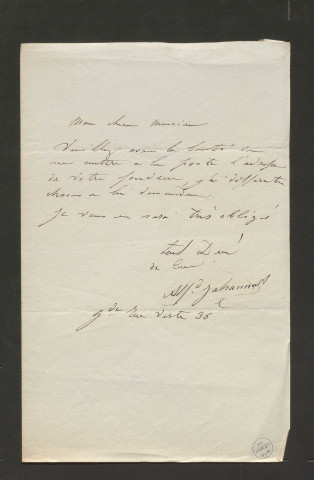 Mon cher monsieur
Veuillez avoir la bonté de
me mettre a la poste l'adresse
de votre fondeur, j'ai différentes
choses a lui demander
Je vous en serai très obligé
tout Dévoué
de Cœur
Alf.d Johannot
g.de Rue Verte 36